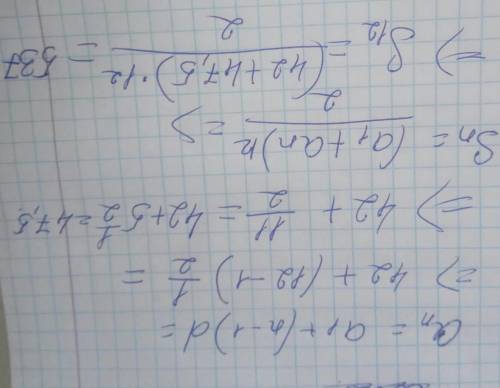 aₙ = a₁ + (n-1)d =
=> 42 + (12-1) 1/2 =
=> 42 + 11/2 = 42 + 5 1/2 = 47,5
Sₙ = (a₁ + aₙ)n / 2 =>
=> S₁₂ = (42 + 47,5) · 12 / 2 = 537